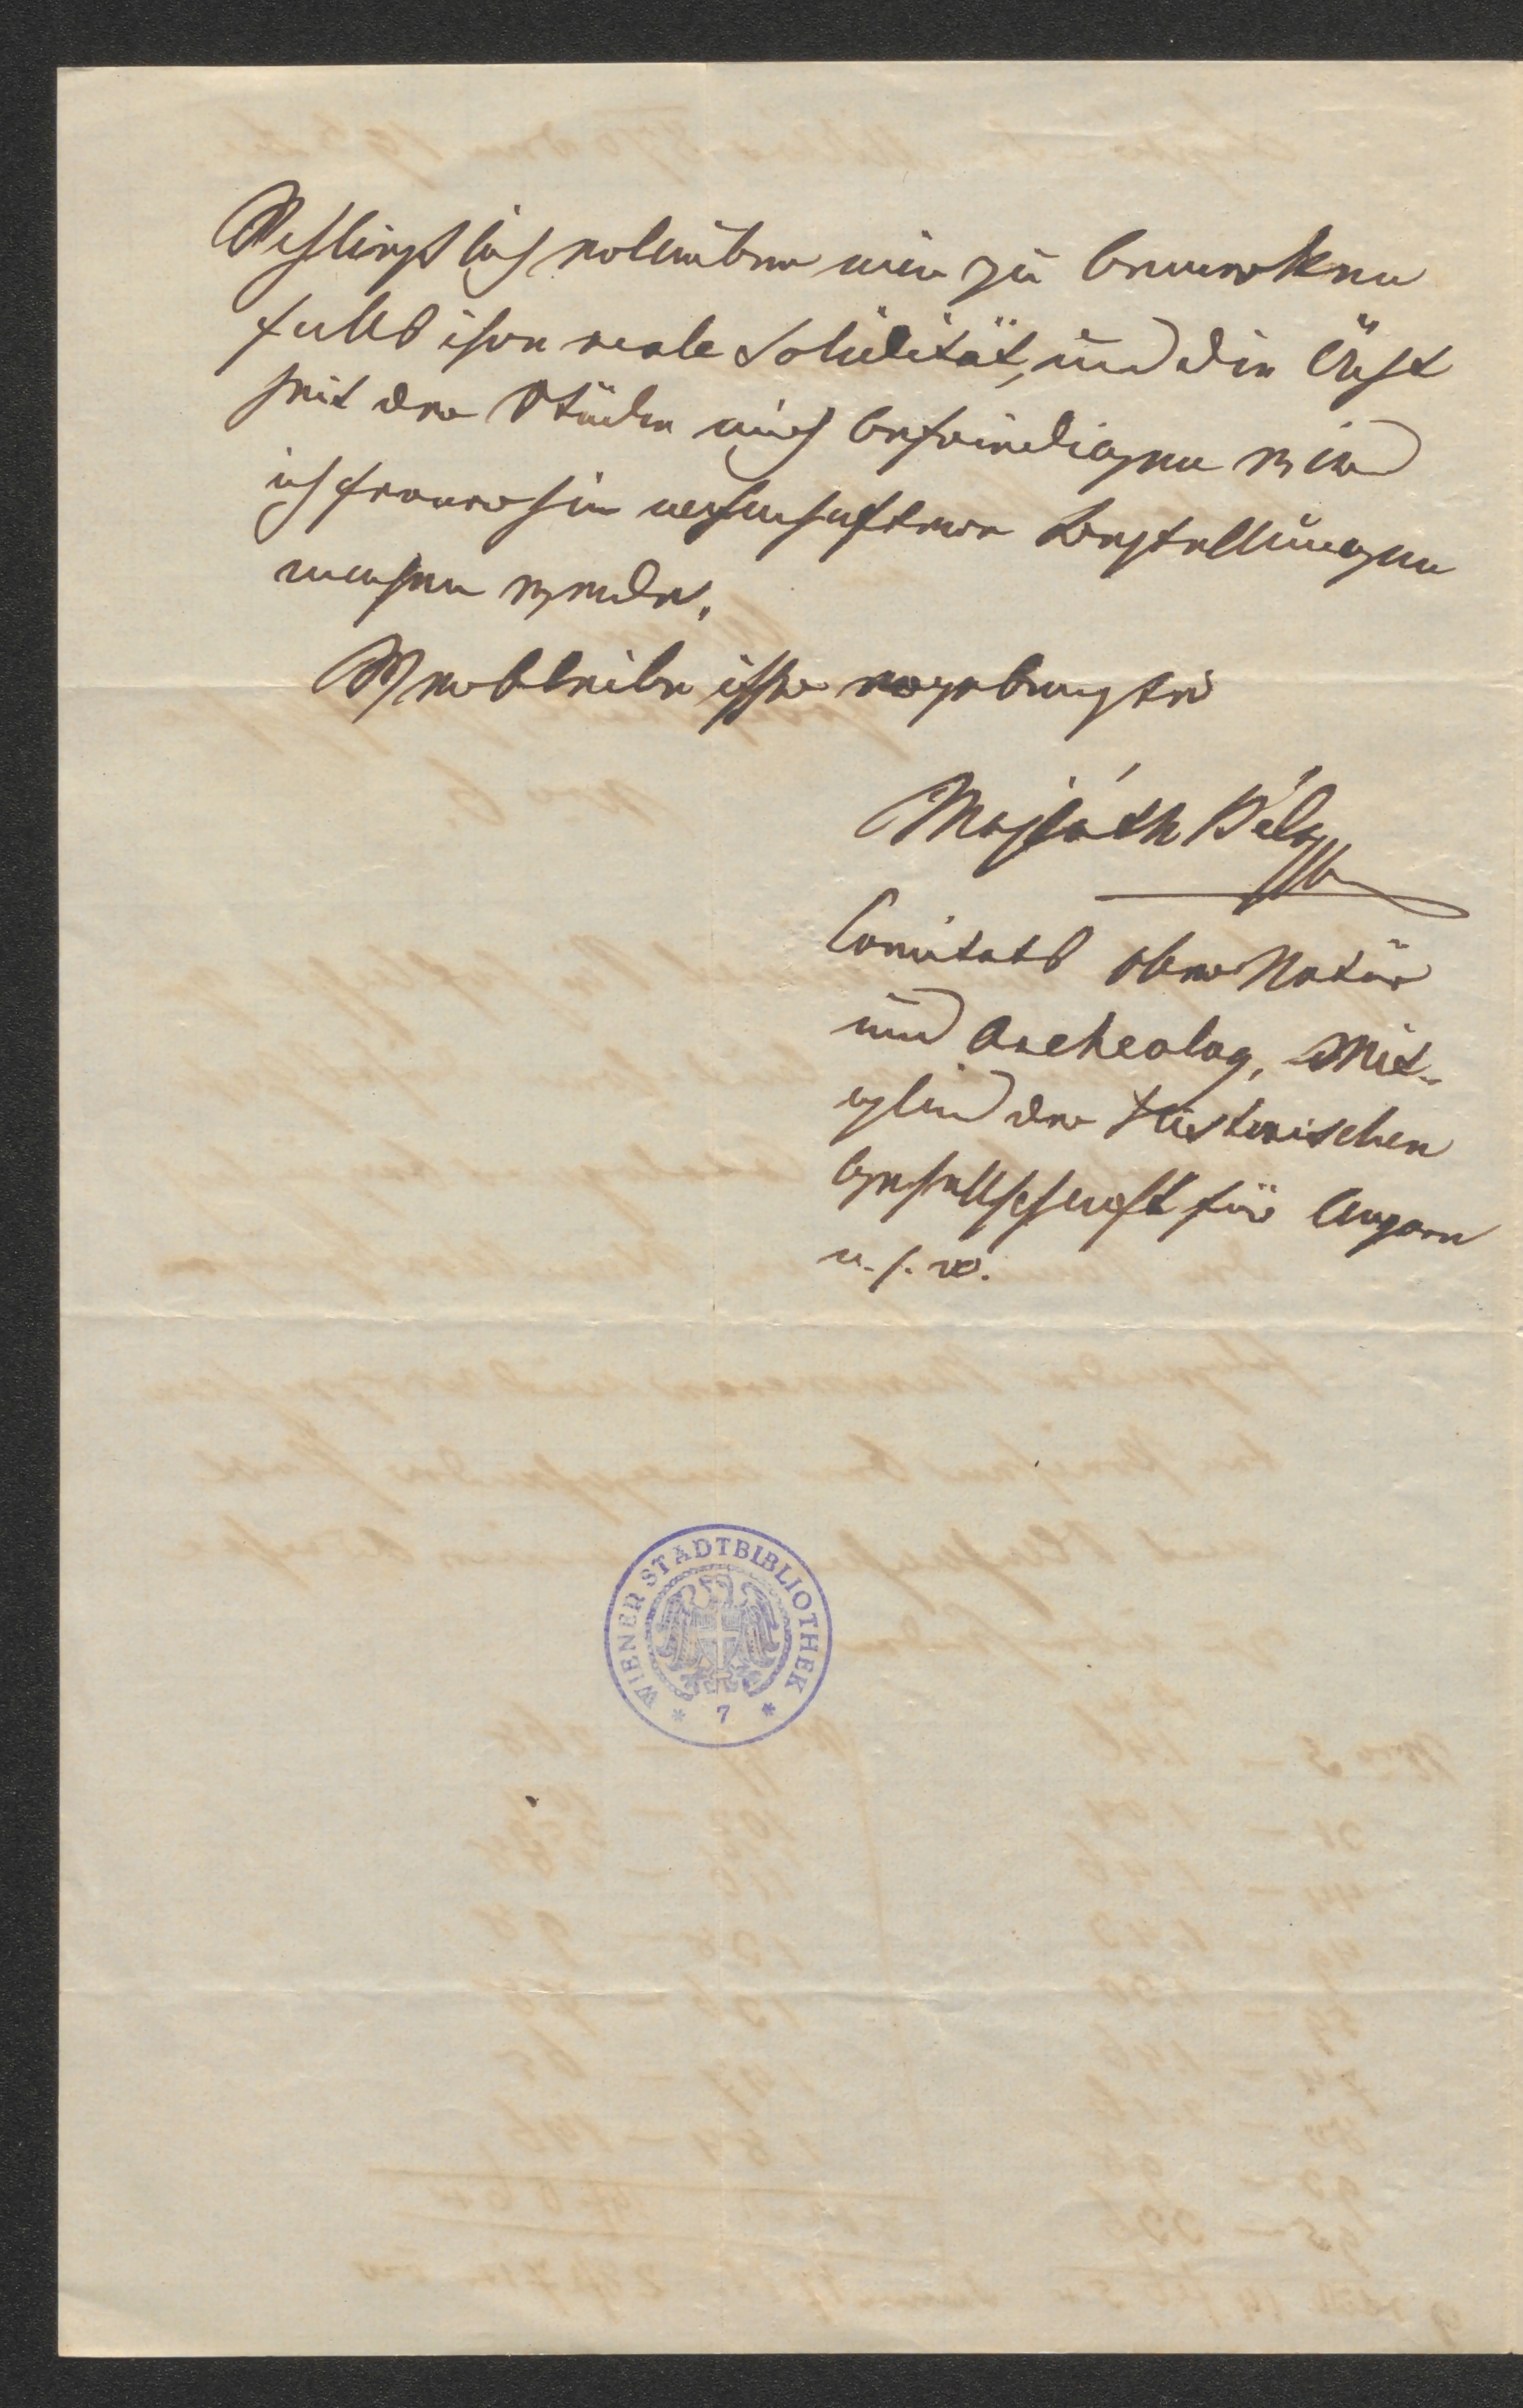 Schließlich erlauben mir zu bemerken
falls ihre reale Solidität, und die Ächt
heit der Stücke mich befriedigen wird
ich ferner hin nahmhaftere Bestellungen
machen werde.
Verbleibe ihr ergebenster
Majláth Béla
Comitats ober Notär
und Archeolog, Mit-
glied der Historischen
Gesellschaft für Ungarn
u. s. w.
WIENER STADTBIBLIOTHEK
* 7 *